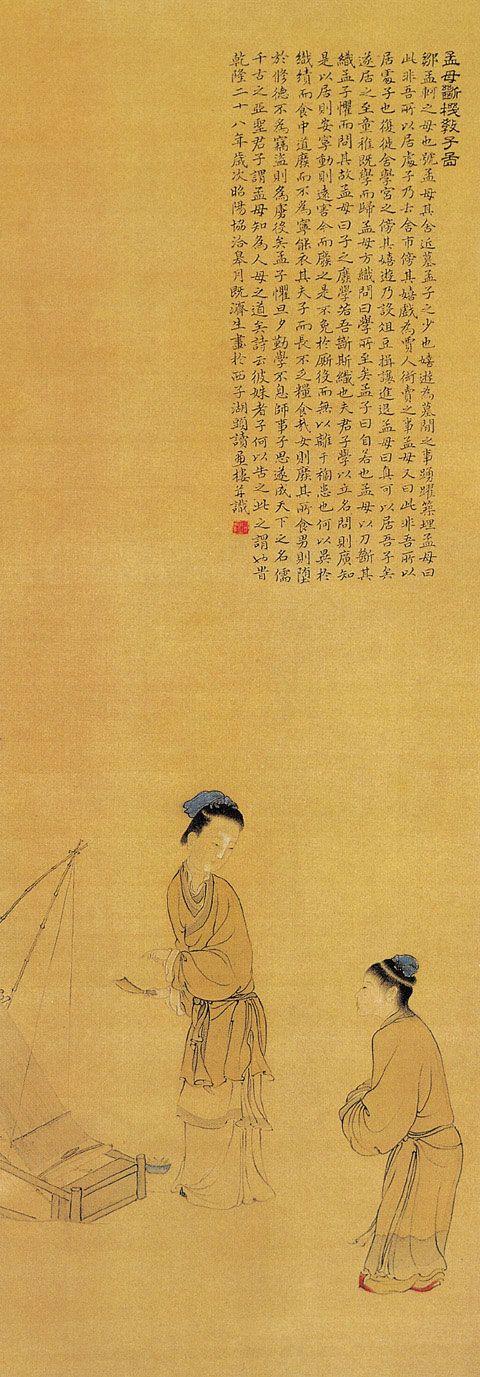 孟母斷機教子圖
鄒孟軻之母也號孟母其舍近墓孟子之少也嬉遊為墓間之事踴躍築埋孟母曰
此非吾所以居處子乃去舍市傍其嬉戲為賈人衒賣之事孟母又曰此非吾所以
居處子也復徙舍學宮之傍其嬉遊乃設俎豆揖讓進退孟母曰真可以居吾子矣
遂居之至童稚既學而歸孟母方織問曰學所至矣孟子曰自若也孟母以刀斷其
織孟子懼而問其故孟母曰子之廢學若吾斷斯織也夫君子學以立名問則廣知
是以居則安寧動則遠害今而廢之是不免於廝役而無以離于禍患也何以異於
織績而食中道廢而不為寧能衣其夫子而長不乏糧食哉女則廢其所食男則墮
於修德不為竊盜則為虜役矣孟子懼旦夕勤學不息師事子思遂成天下之名儒
千古之亞聖君子謂孟母知為人母之道矣詩云彼姝者子何以告之此之謂也旹
乾隆二十八年歲次昭陽協洽皋月既濟生畫於西子湖頭讀畫樓并識